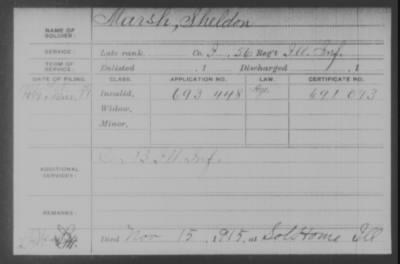 NAME OF SOLDIER: Marsh, Sheldon
SERVICE: Late rank, Co. I, 56 Reg't Ill. Inf.
TERM OF SERVICE: Enlisted , 1 Discharged , 1
DATE OF FILING. CLASS. APPLICATION NO. LAW. CERTIFICATE NO.
Invalid, 693 448 691 093
Widow,
Minor,
ADDITIONAL SERVICES: B Ill Inf.
REMARKS:
Died Nov 15, 1915, at Sol Home Ill